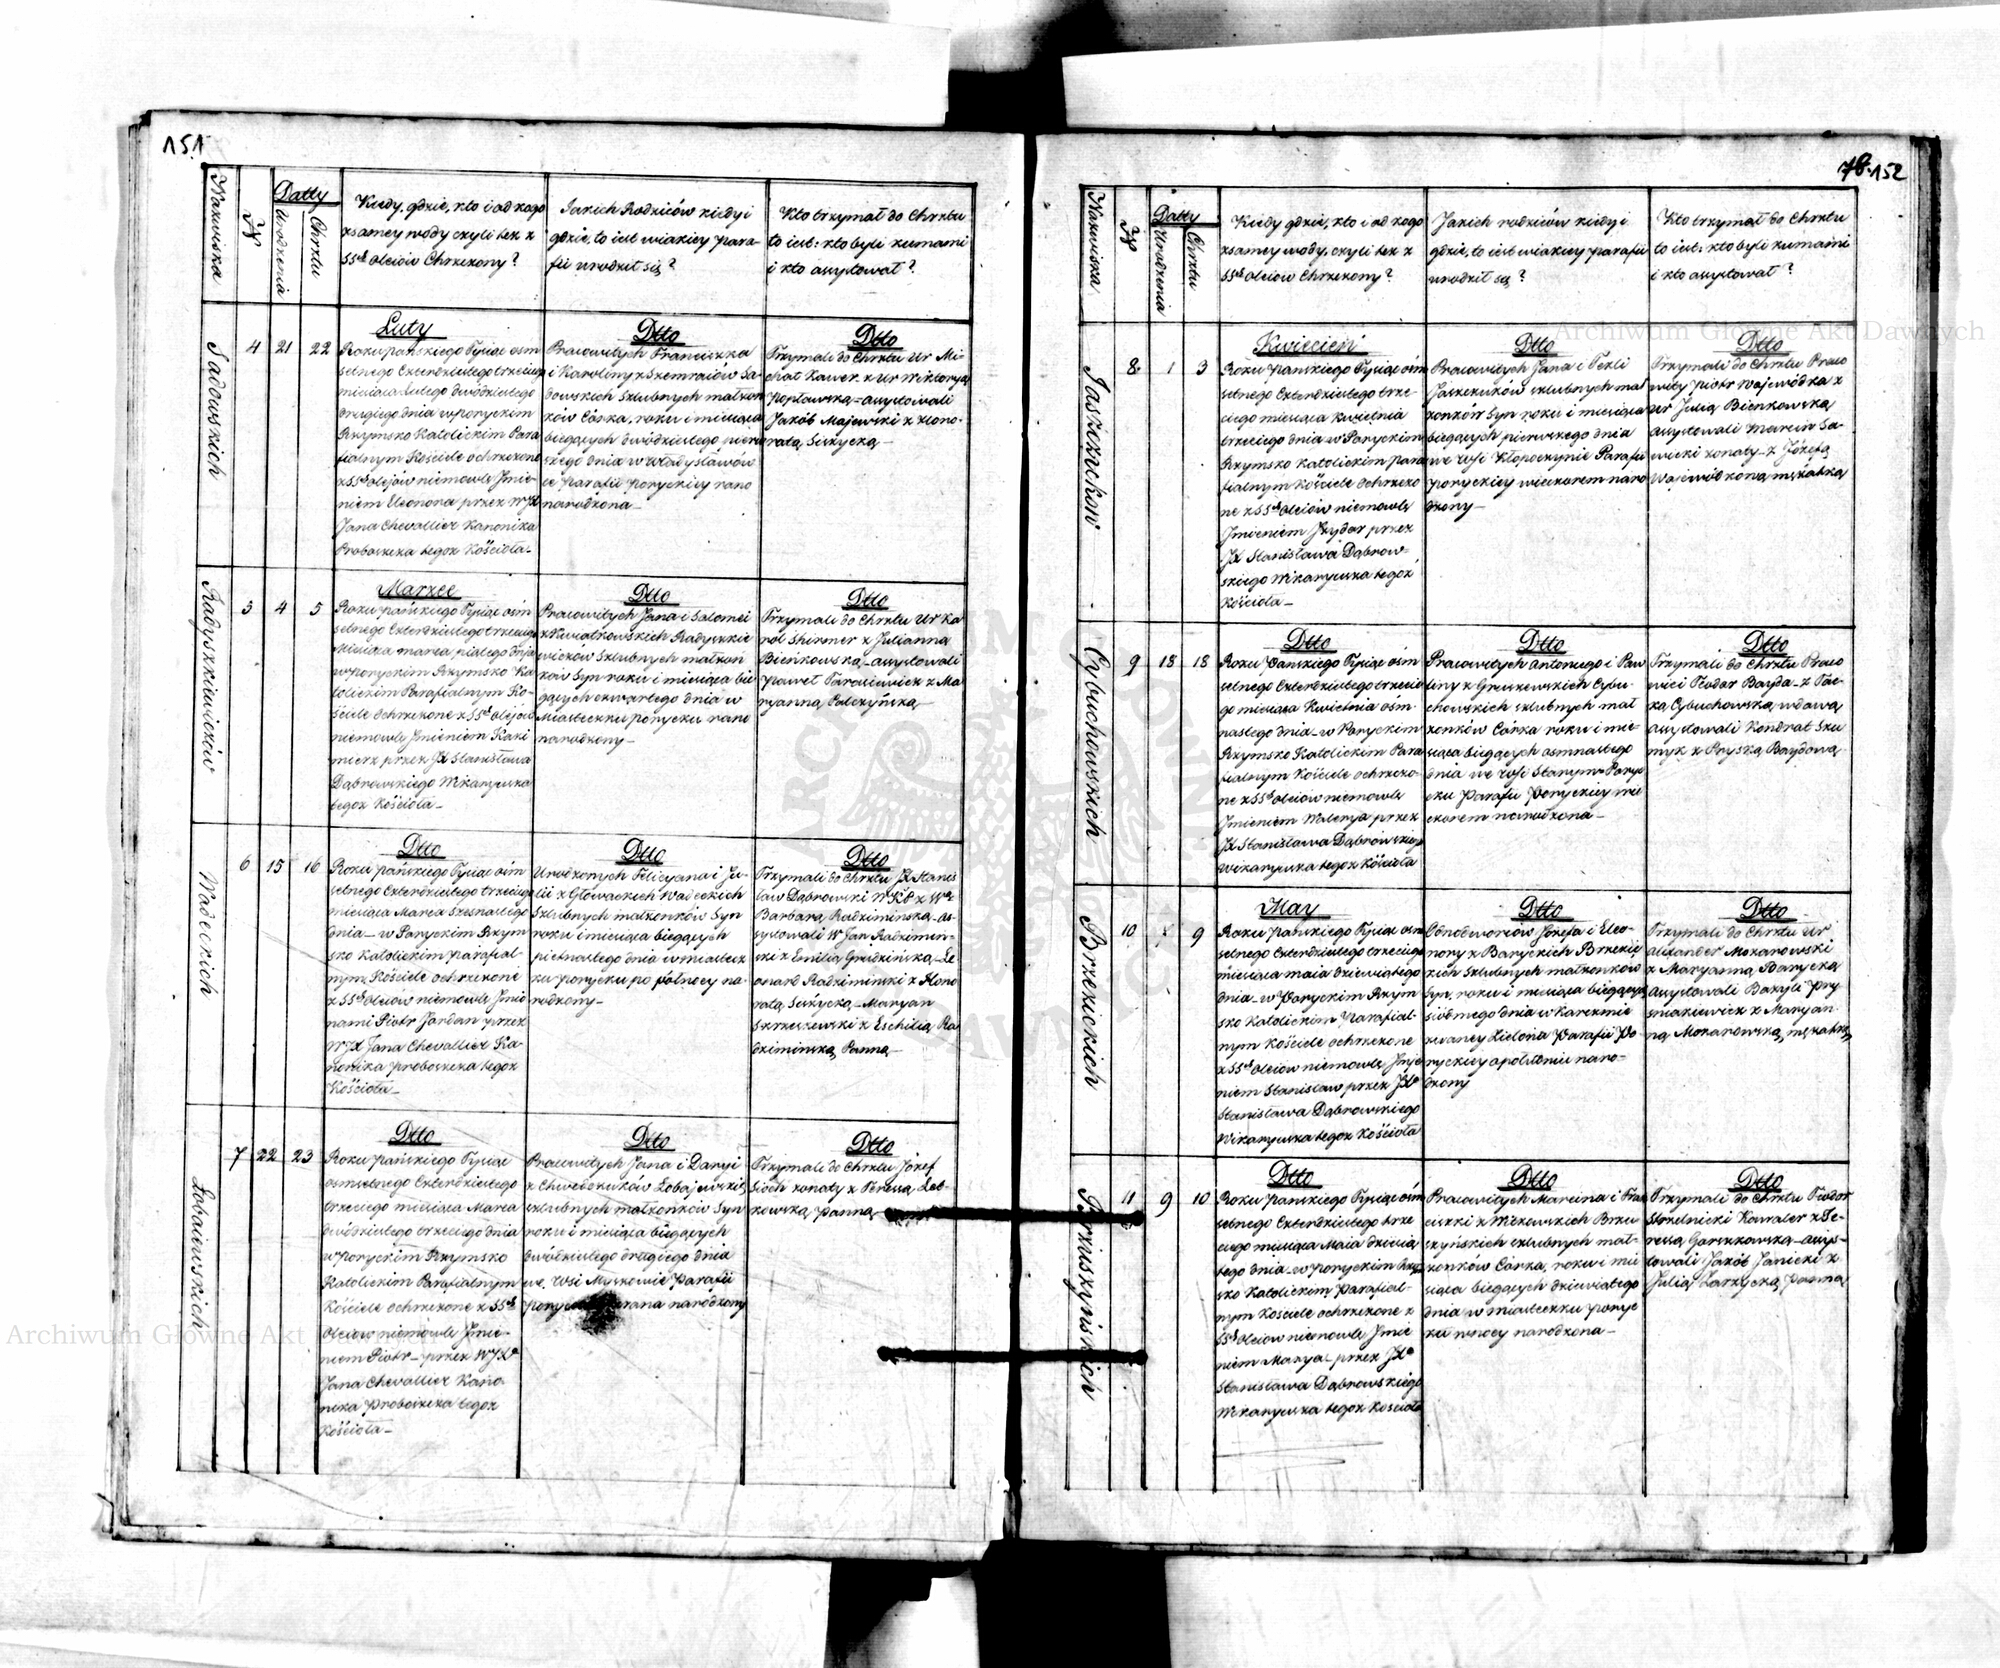 151
Nazwiska
N
Datty
Urodzenia
Chrztu
Kiedy, gdzie, kto i od kogo
z samey wody czyli też z
SSch Oleiów Chrzczony?
Jakich Rodziców kiedy i
gdzie, to iest w iakiey para-
fii urodził się?
Kto trzymał do Chrztu
to iest: kto byli kumami
i kto assystował?
Sadowskich
4 21 22
Luty
Roku pańskiego Tysiąc osm
setnego Czterdziestego trzeciego
miesiąca Lutego dwódziestego
drugiego dnia w poryckim
Rzymsko Katolickim Para
fialnym Kościele ochrzczone
z SSch olejów niemowle Jmie-
niem Eleonora przez WJX
Jana Chevallier Kanonika
Proboszcza tegoż Kościoła_
Dtto
Pracowitych Franciszka
i Karoliny z Szemraiów Sa-
dowskich Szlubnych małżon
ków Córka, roku i miesiąca
bieżących dwódziestego pierw
szego dnia w Władysławów
ce Parafii poryckiey rano
narodzona_
Dtto
Trzymali do Chrztu Ur Mi-
chał Kawer. z Ur Wiktoryą
Popławską_assystowali
Jakób Majewski z Hono-
ratą Siżycką_
Radyszkiewiczów
5 4 5
Marzec
Roku pańskiego Tysiąc osm
setnego Czterdziestego trzeciego
Miesiąca marca piątego dnia
w poryckim Rzymsko Ka
tolickim Parafialnym Ko-
ściele Ochrzczone z SSch olejów
niemowle Jmieniem Kazi
mierz przez JX Stanisława
Dąbrowskiego Wikaryusza
tegoż Kościoła_
Dtto
Pracowitych Jana i Salomei
z Kwiatkowskich Radyszkie
wiczów Szlubnych małżon
ków Syn roku i miesiąca bie
żących czwartego dnia w
Miasteczku porycku rano
narodzony_
Dtto
Trzymali do Chrztu Ur Ka
rol Shirmer z Julianną
Bieńkowską_assystowali
Paweł Tarasiewicz z Ma
ryanną Palczyńską_
Wadeckich
6 15 16
Dtto
Roku pańskiego Tysiąc osm
setnego Czterdziestego trzeciego
miesiąca Marca szesnastego
dnia_w Poryckim Rzym
sko Katolickim parafial-
nym Kościele ochrzczone
z SSch Oleiów niemowle Jmio
nami Piotr Jordan przez
WJX Jana Chevallier Ka-
nonika proboszcza tegoż
Kościoła_
Dtto
Urodzonych Felicyana i Ju-
lii z Głowackich Wadeckich
Szlubnych małżonków Syn
roku i miesiąca bieżących
pietnastego dnia w miastecz
ku porycku po północy na-
rodzony_
Dtto
Trzymali do Chrztu JX Stanis
ław Dąbrowski z
Barbarą Radzimińską_as-
systowali W Jan Radzimiń-
ski z Emilią Grudzińską_Le
onard Radzimiński z Hono
ratą Siżycką_Maryan
Skrzeszewski z Eschilią Ra
dzimińską Panną_
Łobaiewskich
7 22 23
Dtto
Roku pańskiego Tysiąc
osmsetnego Czterdziestego
trzeciego miesiąca Marca
dwódziestego trzeciego dnia
w poryckim Rzymsko
Katolickim Parafialnym
Kościele ochrzczone z SSch
Oleiów niemowle Jmie-
niem Piotr_przez WJXa
Jana Chevallier Kano-
nika proboszcza tegoż
Kościoła_
Dtto
Pracowitych Jana i Daryi
z Chwedczuków Łobajewskich
szlubnych małżonków Syn
roku i miesiąca bieżących
dwódziestego drugiego dnia
we Wsi Myszkowie Parafii
narodzony
Dtto
Trzymali do Chrztu Józef
żonaty z Teressą Let-
kowską panną
152
Nazwiska
N
Datty
Urodzenia
Chrztu
Kiedy gdzie, kto i od kogo
z samey wody, czyli też z
SSch Oleiów Chrzczony?
Jakich rodziców kiedy i
gdzie, to iest w iakiey parafii
urodził się?
Kto trzymał do Chrztu
to iest: kto byli kumami
i kto assystował?
Jaszczuków
8 1 3
Kwiecień
Roku pańskiego Tysiąc ośm
setnego Czterdziestego trze-
ciego miesiąca Kwietnia
trzeciego dnia w Poryckim
Rzymsko Katolickim para
fialnym Kościele Ochrzczo
ne z SSch Oleiów niemowle
Jmieniem Jzydor przez
JX Stanisława Dąbrow-
skiego Wikaryusza tegoż
Kościoła_
Dtto
Pracowitych Jana i Tekli
Jaszczuków szlubnych mał
żonków Syn roku i miesiąca
bieżących pierwszego dnia
we wsi Kłopoczynie Parafii
poryckiey wieczorem naro
dzony_
Dtto
Trzymali do Chrztu Praco
wity Piotr Wojewódka z
Ur Julią Bienkowską
assystowali Marcin Sa-
wicki żonaty_z Józefą
Woiewódkową mężatką
Cybuchowskich
9 18 18
Dtto
Roku Pańskiego Tysiąc ośm
setnego Czterdziestego trzecie
go miesiąca Kwietnia osm-
nastego dnia_w Poryckim
Rzymsko Katolickim Para
fialnym Kościele ochrzczo-
ne z SSch Oleiów niemowle
Jmieniem Walerya przez
JX Stanisława Dąbrowskiego
Wikaryusza tegoż Kościoła
Dtto
Pracowitych Antoniego i Paw
liny z Gruszewskich Cybu-
chowskich szlubnych mał
żonków Córka roku i mie-
siąca bieżących osmnastego
dnia we wsi Starym-Pory
cku Parafii Poryckiey wie
czorem narodzona_
Dtto
Trzymali do Chrztu Praco
wici Teodor Bayda_z Tac-
ką Cybuchowską wdową
assystowali Kondrat Szu
myk z Pryską Baydową
Brzezickich
10 7 9
May
Roku Pańskiego Tysiąc osm
setnego Czterdziestego trzeciego
miesiąca maia dziewiątego
dnia_w Poryckim Rzym
sko Katolickim Parafial-
nym Kościele ochrzczone
z SSch Oleiów niemowle Jmie
niem Stanisław przez JXa
Stanisława Dąbrowskiego
Wikaryusza tegoż Kościoła
Dtto
Jednodworców Józefa i Eleo-
nory z Baryckich Brzezic
kich szlubnych małżonków
Syn, roku i miesiąca bieżących
siódmego dnia w karczmie
zwaney Zielona Parafii Po
ryckiey o południu naro-
dzony
Dtto
Trzymali do Chrztu Ur
Alexander Mokanowski
z Maryanną Barycką
assystowali Bazyli Pry
sniakiewicz z Maryan
ną Mokanowską, mężatką
Brzuszyńskich
11 9 10
Dtto
Roku pańskiego Tysiąc ośm
setnego Czterdziestego trze
ciego miesiąca Maia dziesią
tego dnia_w poryckim Rzym
sko Katolickim Parafial-
nym Kościele ochrzczone z
SSch Oleiów niemowle Jmie
niem Marya_przez JXa
Stanisława Dąbrowskiego
Wikaryusza tegoż Kościoła
Dtto
Pracowitych Marcina i Fran
ciszki z Brzu
szyńskich szlubnych mał-
żonków Córka, roku i mie
siąca bieżących dziewiątego
dnia w miasteczku poryc
ku w nocy narodzona_
Dtto
Trzymali do Chrztu Teodor
Strelnicki Kawaler z Te-
ressą Gorszkowską_assys-
towali Jakób Janicki z
Julią Zarzycką Panną
Archiwum Główne Akt Dawnych
Archiwum Główne Akt